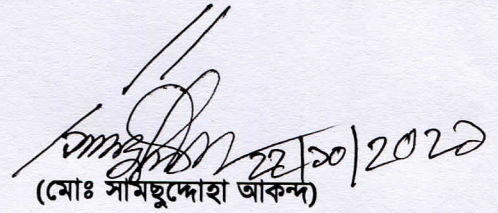 ২২/১০/২০২০
(মোঃ সামছুদ্দোহা আকন্দ)